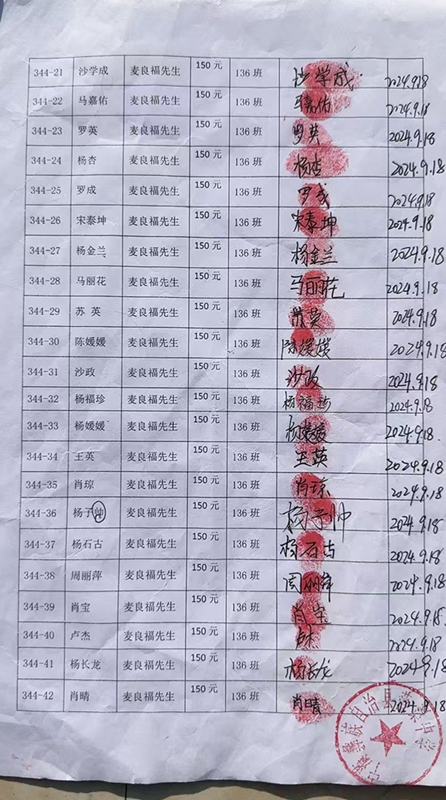 344-21 沙学成 麦良福先生 150元 136班 沙学成 2024.9.18
344-22 马嘉佑 麦良福先生 150元 136班 马嘉佑 2024.9.18
344-23 罗英 麦良福先生 150元 136班 罗英 2024.9.18
344-24 杨杏 麦良福先生 150元 136班 杨杏 2024.9.18
344-25 罗成 麦良福先生 150元 136班 罗成 2024.9.18
344-26 宋泰坤 麦良福先生 150元 136班 宋泰坤 2024.9.18
344-27 杨金兰 麦良福先生 150元 136班 杨金兰 2024.9.18
344-28 马丽花 麦良福先生 150元 136班 马丽花 2024.9.18
344-29 苏英 麦良福先生 150元 136班 苏英 2024.9.18
344-30 陈媛媛 麦良福先生 150元 136班 陈媛媛 2024.9.18
344-31 沙政 麦良福先生 150元 136班 沙政 2024.9.18
344-32 杨福珍 麦良福先生 150元 136班 杨福珍 2024.9.18
344-33 杨媛媛 麦良福先生 150元 136班 杨媛媛 2024.9.18
344-34 王英 麦良福先生 150元 136班 王英 2024.9.18
344-35 肖琼 麦良福先生 150元 136班 肖琼 2024.9.18
344-36 杨子帅 麦良福先生 150元 136班 杨子帅 2024.9.18
344-37 杨石古 麦良福先生 150元 136班 杨石古 2024.9.18
344-38 周丽萍 麦良福先生 150元 136班 周丽萍 2024.9.18
344-39 肖宝 麦良福先生 150元 136班 肖宝 2024.9.18
344-40 卢杰 麦良福先生 150元 136班 2024.9.18
344-41 杨长龙 麦良福先生 150元 136班 杨长龙 2024.9.18
344-42 肖晴 麦良福先生 150元 136班 肖晴 2024.9.18
彝族自治县